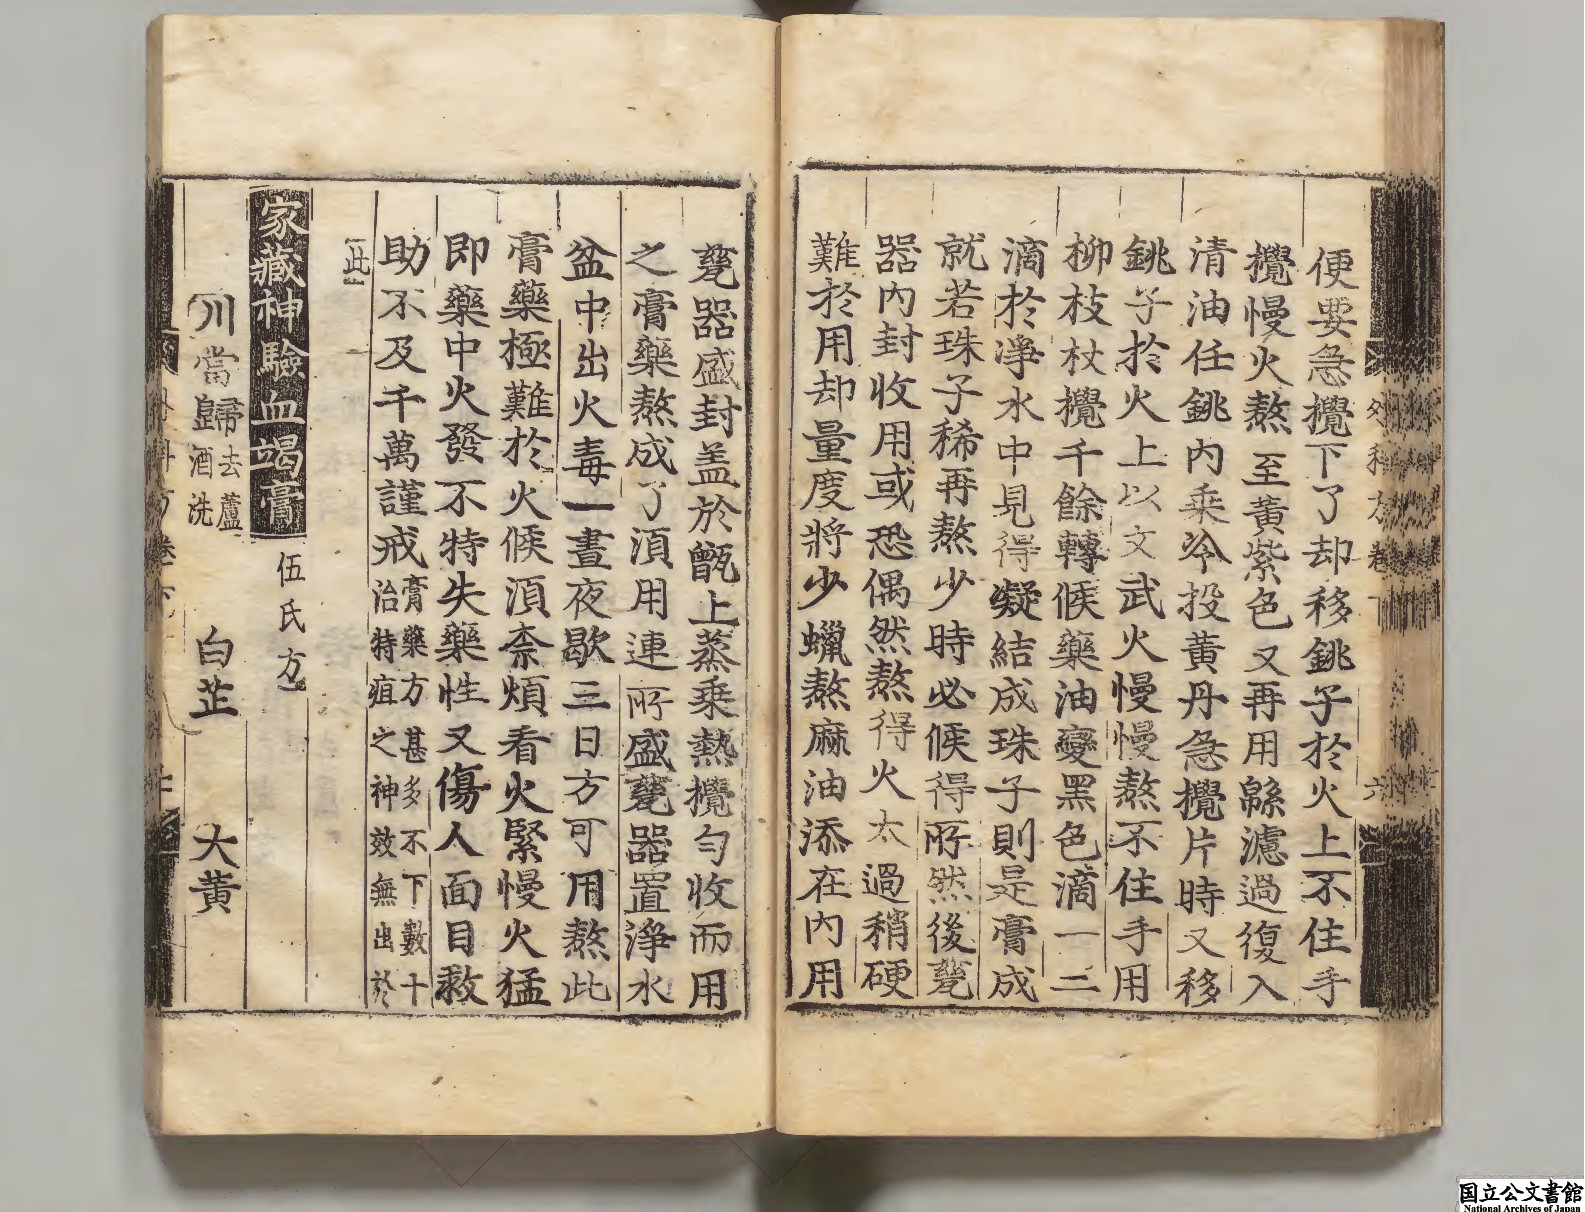 便要急攪下了却移銚子於火上不住手
攪慢火熬至黃紫色又再用緜濾過復入
清油任銚內乘冷投黃丹急攪片時又移
銚子於火上以文武火慢慢熬不住手用
柳枝杖攪千餘轉候藥油變黑色滴一二
滴於淨水中見得凝結成珠子則是膏成
就若珠子稀再熬少時必候得所然後甆
器內封收用或恐偶然熬得火太過稍硬
難於用却量度將少蠟熬麻油添在內用
外科方卷 六
甆器盛封盖於甑上蒸乘熱攪勻收而用
之膏藥熬成了湏用連所盛甆器置淨水
盆中出火毒一晝夜歇三日方可用熬此
膏藥極難於火候湏柰煩看火緊慢火猛
即藥中火發不特失藥性又傷人面目救
助不及千萬謹戒膏藥方甚多不下數十
治特疽之神效無出於
此
家藏神驗血竭膏 伍氏方
川當歸去蘆
酒洗 白芷 大黃
国立公文書館
National Archives of Japan